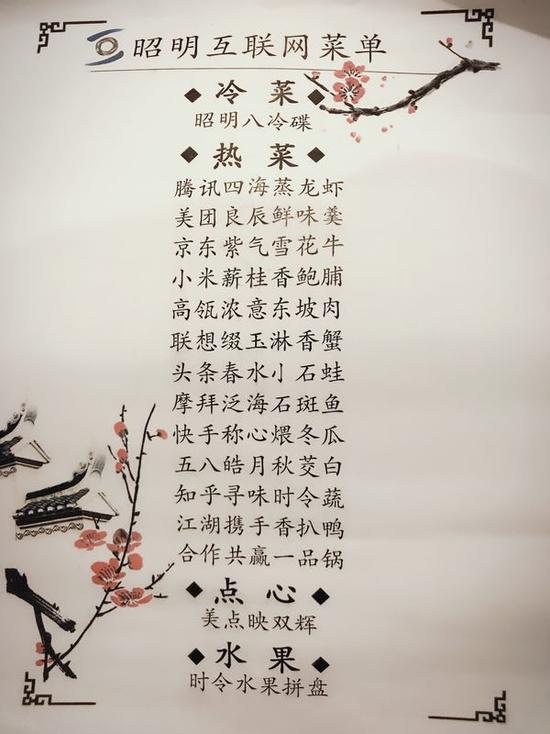 昭明互联网菜单
◆ 冷 菜 ◆
昭明八冷碟
◆ 热 菜 ◆
腾讯四海蒸龙虾
美团良辰鲜味羹
京东紫气雪花牛
小米薪桂香鲍脯
高瓴浓意东坡肉
联想缀玉淋香蟹
头条春水小石蛙
摩拜泛海石斑鱼
快手称心煨冬瓜
五八皓月秋茭白
知乎寻味时令蔬
江湖携手香扒鸭
合作共赢一品锅
◆ 点 心 ◆
美点映双辉
◆ 水 果 ◆
时令水果拼盘